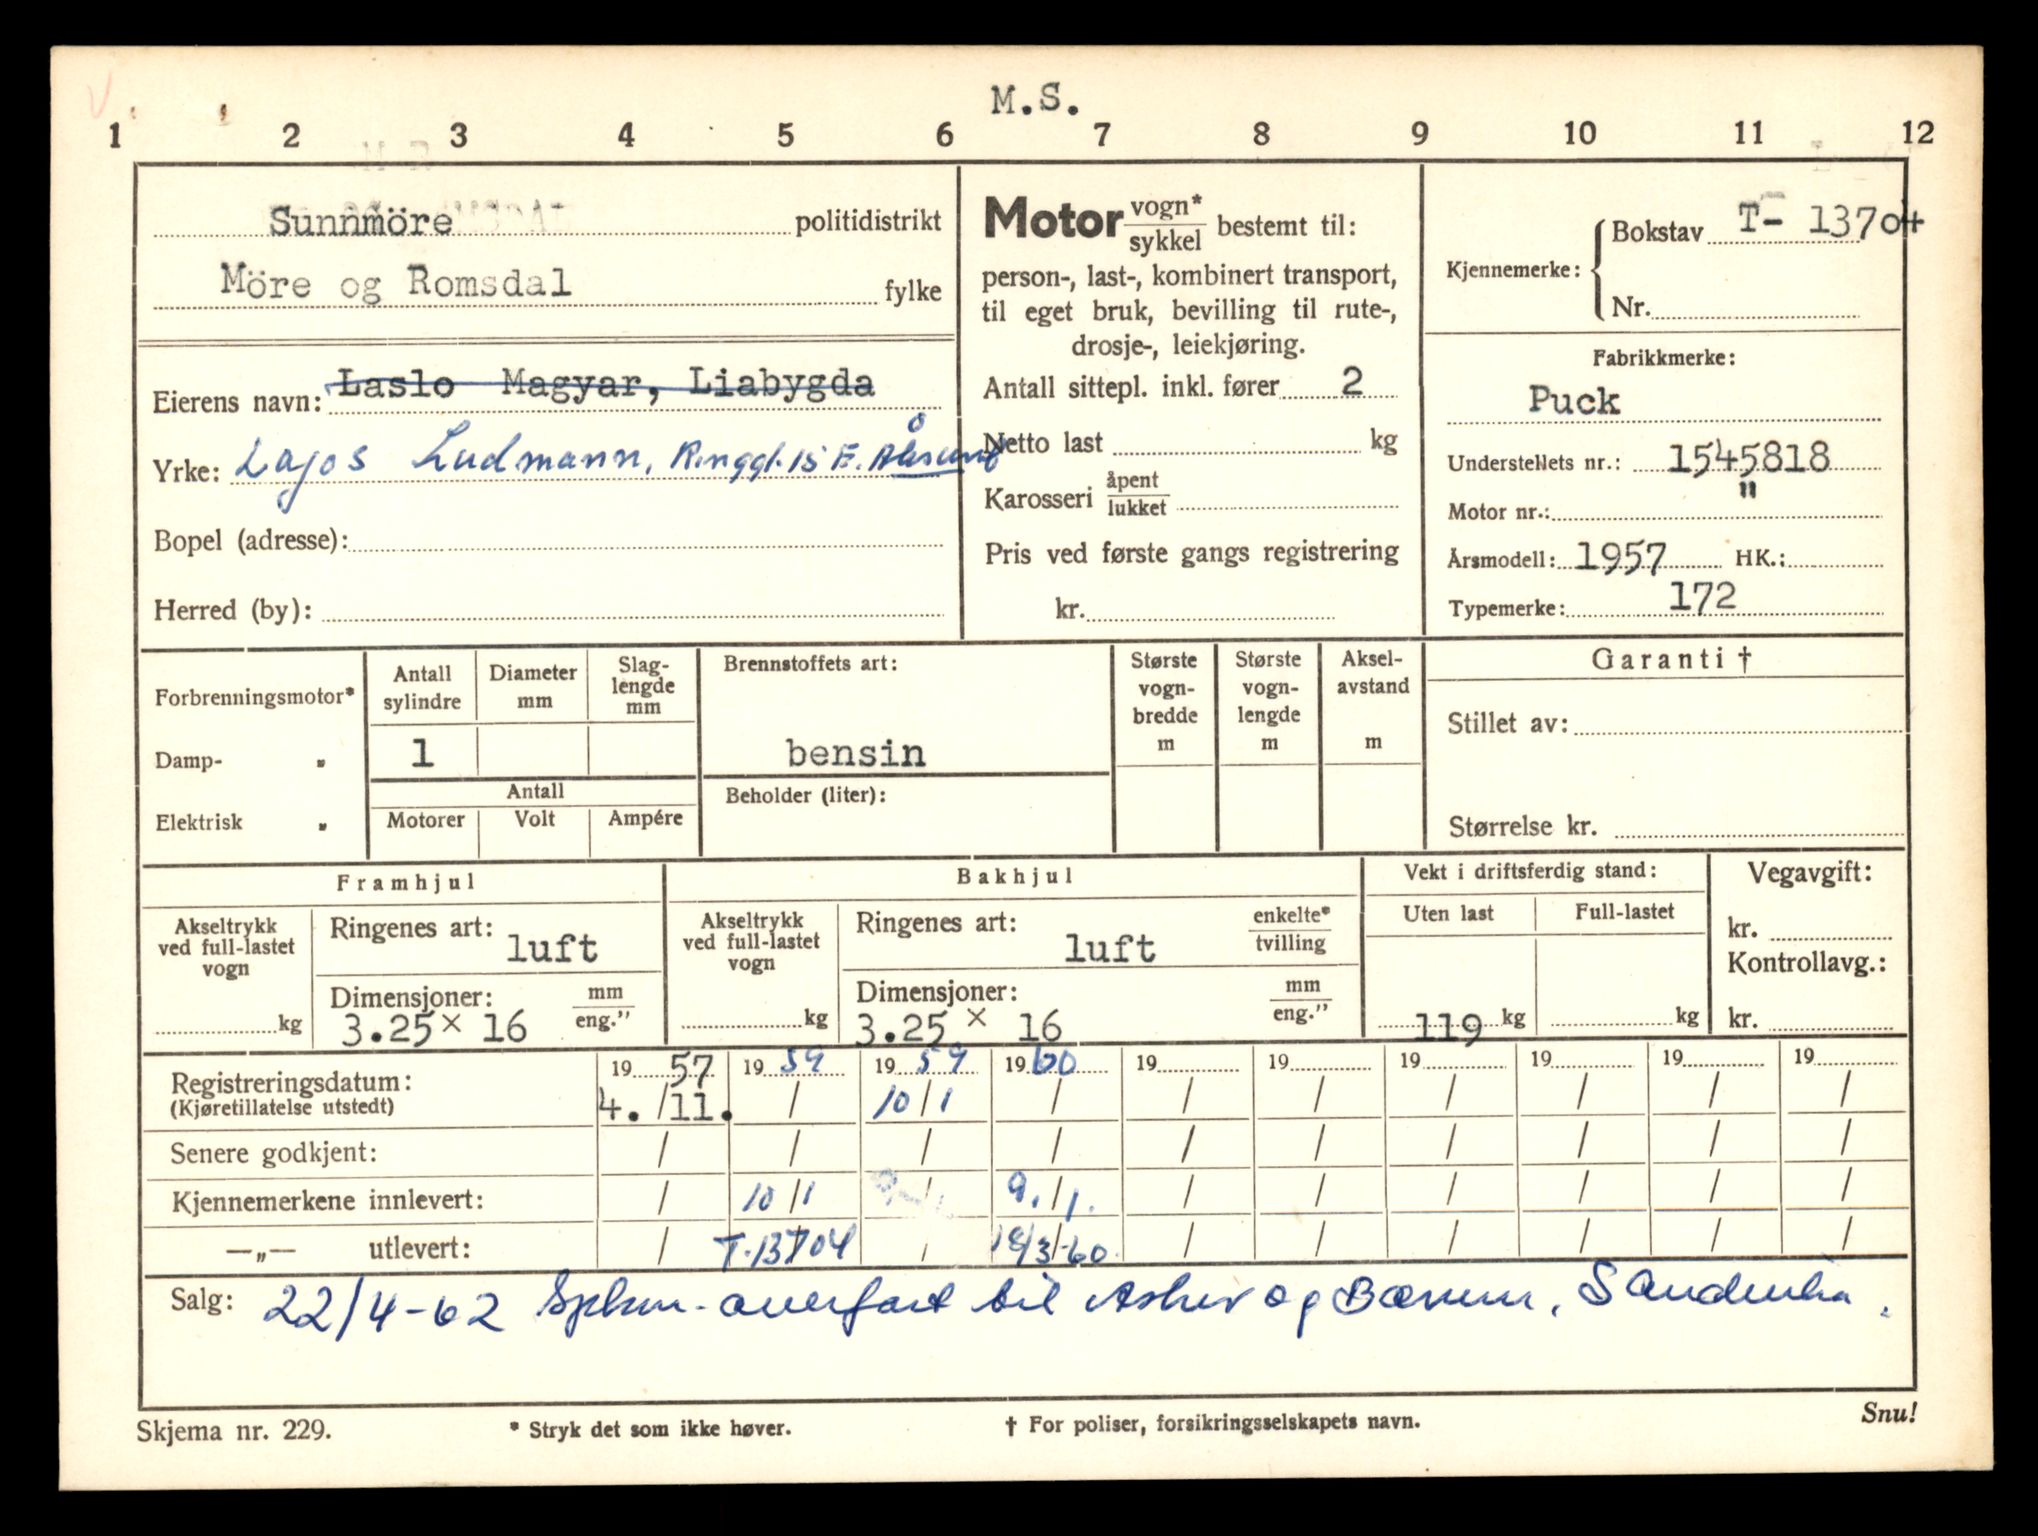 M.S.
1 2 3 4 5 6 7 8 9 10 11 12
Sunnmöre politidistrikt
Möre og Romsdal fylke
Eierens navn: Laslo Magyar, Liabygda
Yrke: Lajos Ludmann, Ringgt. 15 E. Ålesund
Bopel (adresse):
Herred (by):
Motor vogn* / sykkel bestemt til:
person-, last-, kombinert transport,
til eget bruk, bevilling til rute-,
drosje-, leiekjøring.
Antall sittepl. inkl. fører 2
Netto last kg
Karosseri åpent / lukket
Pris ved første gangs registrering
kr.
Kjennemerke: Bokstav T- 13704
Nr.
Fabrikkmerke:
Puck
Understellets nr.: 1545818
Motor nr.: "
Årsmodell: 1957 HK.:
Typemerke: 172
Forbrenningsmotor*
Damp- „
Elektrisk „
Antall sylindre Diameter mm Slag-lengde mm
1
Antall
Motorer Volt Ampére
Brennstoffets art:
bensin
Beholder (liter):
Største vogn-bredde m
Største vogn-lengde m
Aksel-avstand m
Garanti †
Stillet av:
Størrelse kr.
Framhjul
Akseltrykk ved full-lastet vogn
kg
Ringenes art: luft
Dimensjoner: mm / eng."
3.25 × 16
Bakhjul
Akseltrykk ved full-lastet vogn
kg
Ringenes art: luft enkelte* / tvilling
Dimensjoner: mm / eng."
3.25 × 16
Vekt i driftsferdig stand:
Uten last Full-lastet
119 kg kg
Vegavgift:
kr.
Kontrollavg.:
kr.
19 57 19 59 19 59 19 60 19 19 19 19 19 19
Registreringsdatum: 4./11. / 10/1 / / / / / / /
(Kjøretillatelse utstedt)
Senere godkjent: / / / / / / / / / /
Kjennemerkene innlevert: / 10/1 / 9./1. / / / / / /
—„— utlevert: / T-13704 / 18/3-60. / / / / / /
Salg: 22/4-62 overført til Asker og Bærum, Sandvika.
Skjema nr. 229. * Stryk det som ikke høver. † For poliser, forsikringsselskapets navn. Snu!